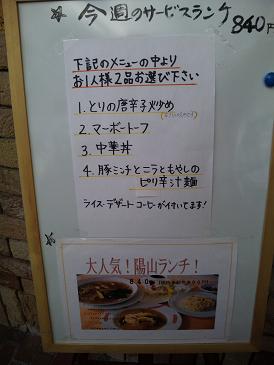 今週のサービスランチ 840円
下記のメニューの中より
お1人様2品お選び下さい
1. とりの唐辛子炒め
2. マーボートーフ
3. 中華丼
4. 豚ミンチとニラともやしの
ピリ辛汁麺
ライス・デザートコーヒーが付いてます!
大人気!陽山ランチ!
840